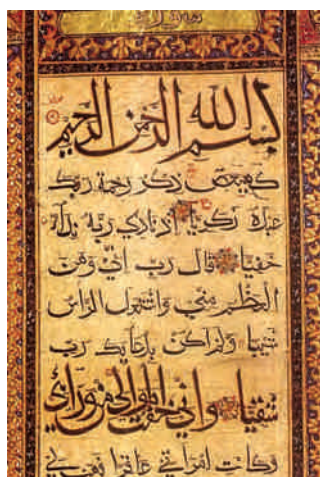 بسم الله الرحمن الرحيم
كهيعص ذكر رحمة ربك
عبده زكريا اذ نادى ربه نداء
خفيا قال رب اني وهن
العظم مني واشتعل الراس
شيبا ولم اكن بدعايك رب
شقيا واني خفت الموالي من وراي
وكانت امراتي عاقرا فهب لي